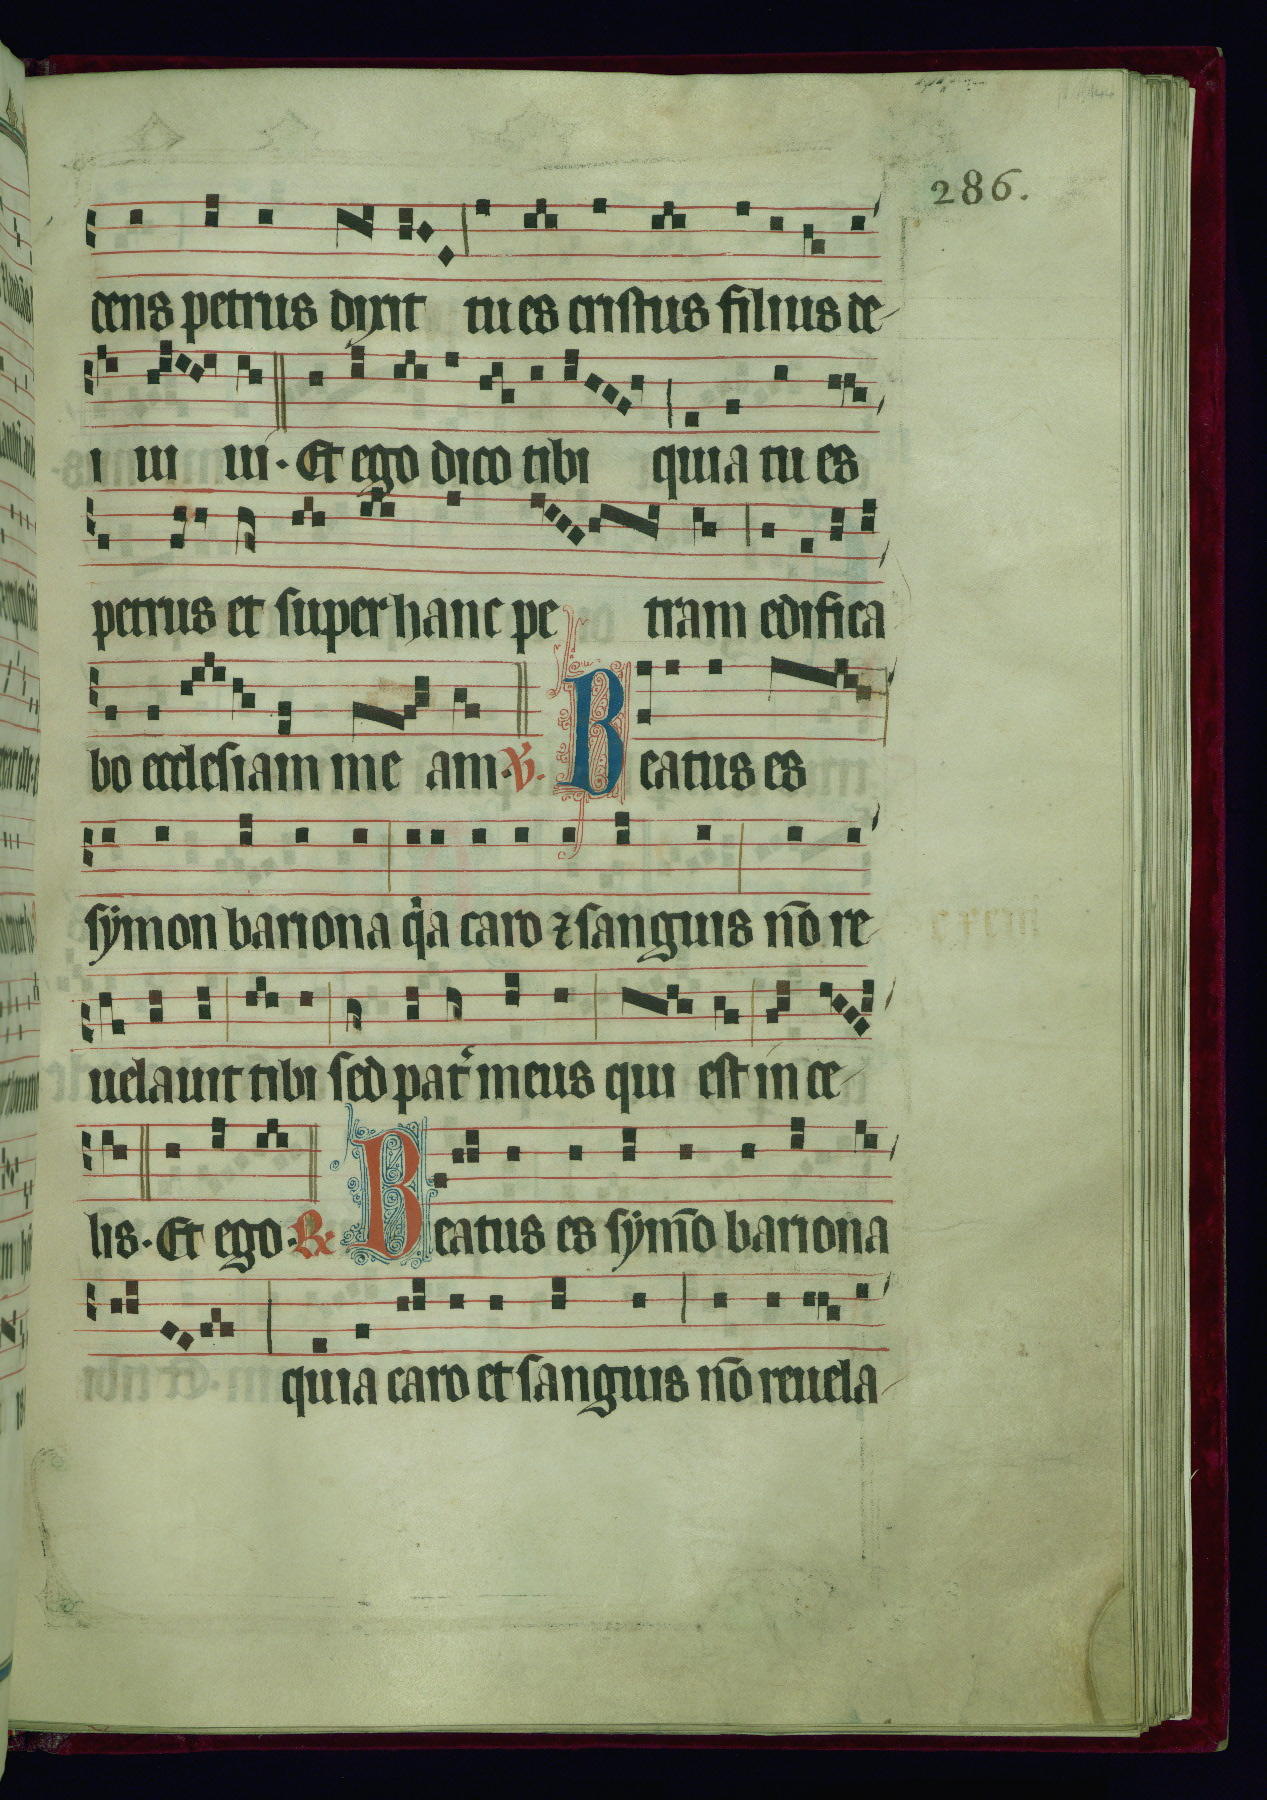 286.
dens petrus dixit tu es cristus filius de-
i ui ui. Et ego dico tibi quia tu es
petrus et super hanc pe tram edifica
bo ecclesiam me am. V. Beatus es
symon bariona qia caro ⁊ sanguis nō re-
uelauit tibi sed pat̾ meus qui est in ce-
lis. Et ego. R Beatus es symōo bariona
quia caro et sanguis nō reuela-